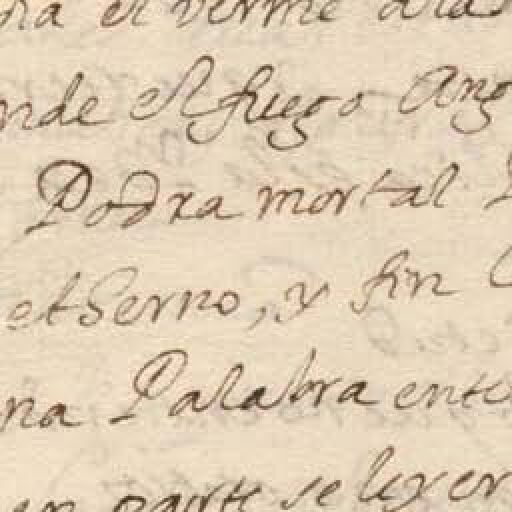 el verme a la
nde el fuego Ang
Podra mortal
etherno, y fin
na Palabra ente
en parte se leyer